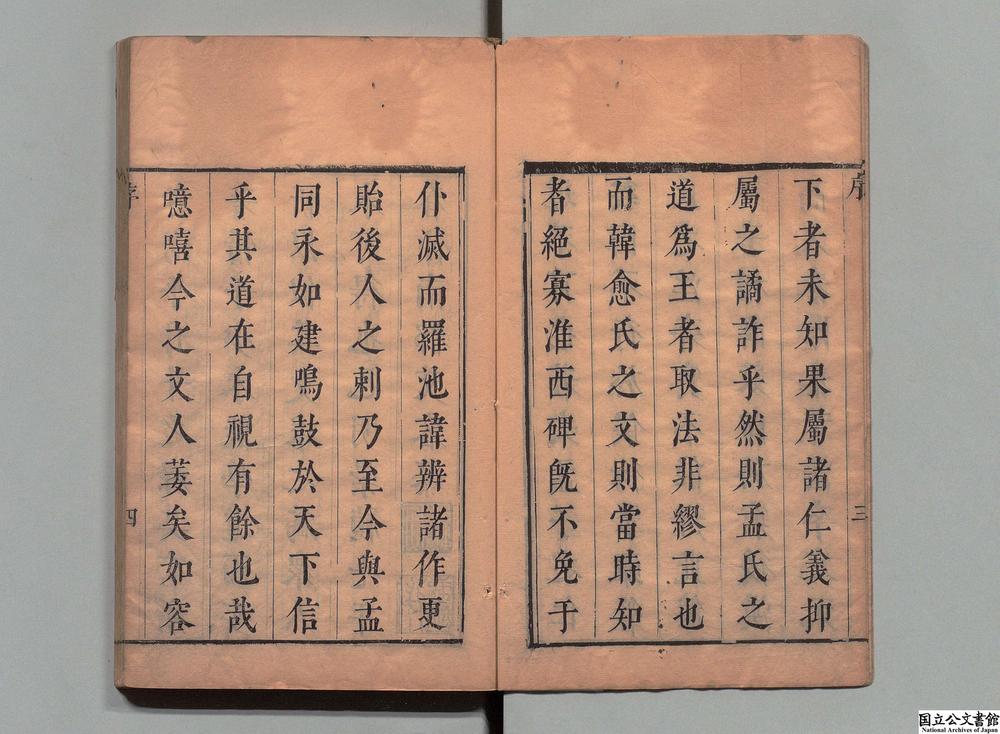 序
三
下者未知果屬諸仁義抑
屬之譎詐乎然則孟氏之
道爲王者取法非繆言也
而韓愈氏之文則當時知
者絕寡淮西碑旣不免于
仆滅而羅池諱辨諸作更
貽後人之刺乃至今與孟
同永如建鳴鼓於天下信
乎其道在自視有餘也哉
噫嘻今之文人萎矣如容
序
四
国立公文書館
National Archives of Japan